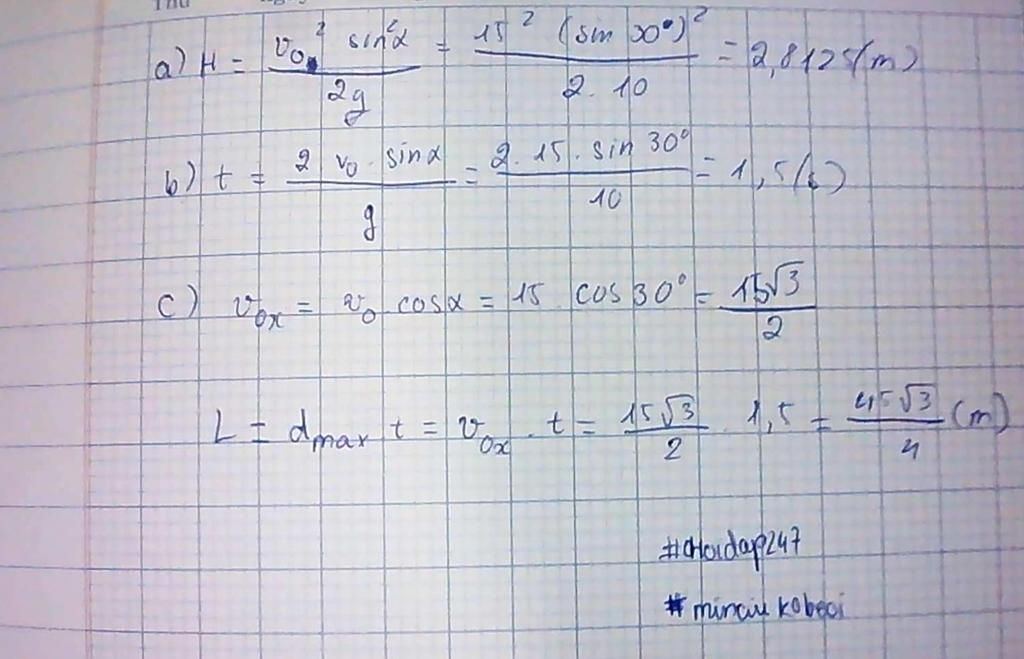 a) H = v₀² sin²α / 2g = 15² (sin 30°)² / 2. 10 = 2,8125(m)
b) t = 2 v₀ . sinα / g = 2. 15. sin 30° / 10 = 1,5(s)
c) v₀ₓ = v₀ cosα = 15 cos 30° = 15√3 / 2
L = dmax t = v₀ₓ . t = 15√3 / 2 . 1,5 = 45√3 / 4 (m)
#Hoidap247